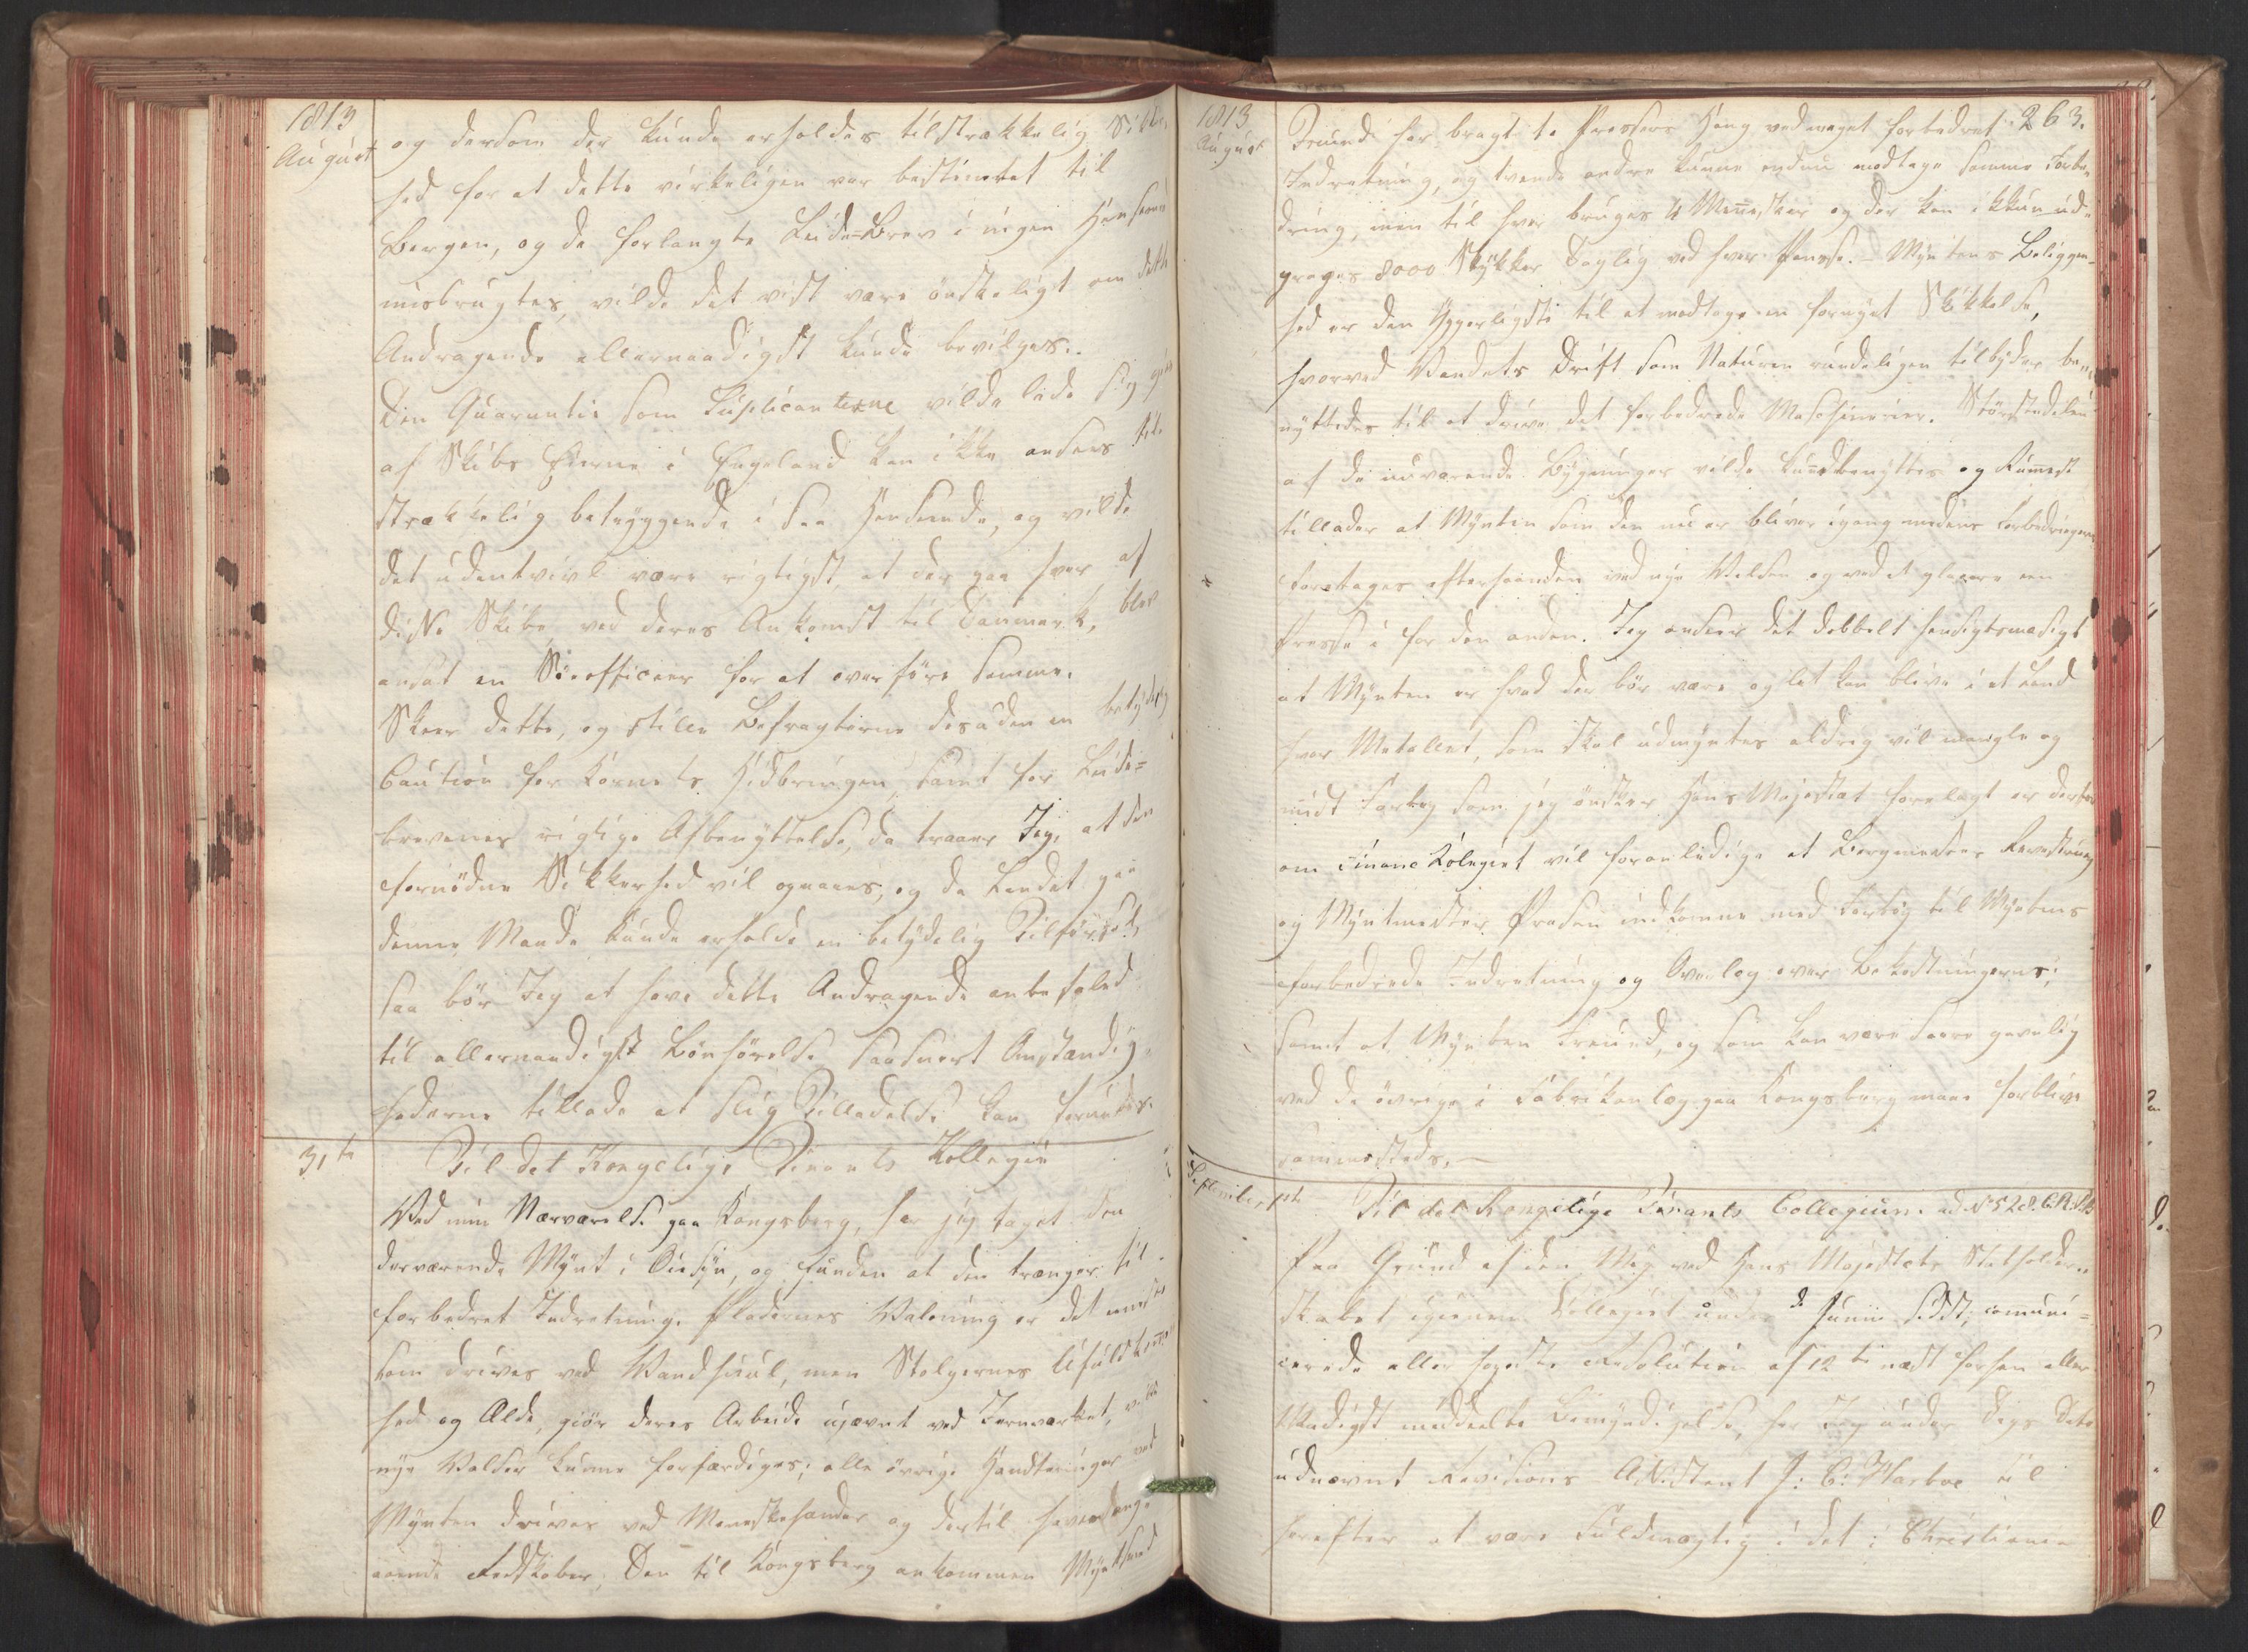 1813
August
og dersom der kunde erholdes tilstrækkelig Sikker
hed for at dette virkeligen var bestemt til
Bergen, og de forlangte Leide-Brev i ingen Henseende
misbrugtes, vilde det vist være ønskeligt om dette
Andragende allernaadigst kunde bevilges.
Den Guarantie som Suplicanterne vilde lade sig give
af Skibs Eierne i Engeland kan ikke ansees til
strækkelig betryggende i saa Henseende, og vilde
det udentvivl være rigtigst, at der paa hver af
disse Skibe, ved deres Ankomst til Danmark, blev
ansat en Søeofficeer for at overføre samme.
Skeer dette, og stille Befragterne desuden en betydelig
Caution for Kornets Hidbringen samt for Leide-
brevenes rigtige Afbenyttelse, da troer Jeg, at den
fornødne Sikkerhed vil opnaaes, og da Landet paa
denne Maade kunde erholde en betydelig Tilførsel,
saa bør Jeg at have dette Andragende anbefaled
til allernaadigst Bønhørelse saasnart Omstændig-
hederne tillade at slig Tilladelse kan forundes.
31te Til det Kongelige Finants Kollegium
Ved min Nærværelse paa Kongsberg, har jeg taget den
derværende Mynt i Øiesyn, og funden at den trænger til
forbedret Indretning. Pladernes Valsning er det meste
som drives ved Vandhiul, men Stolpernes Ufuldkommen
hed og Ælde, giør deres Arbeide ujævnt ved Jernværket, ville
nye Valser kunne forfærdiges; alle øvrige Handteringer ved
Mynten drives ved Menneskehænder og dertil
Redskaber. Den til Kongsberg ankommen Myntsmed
1813
August
263.
Freund har bragt 1e Presses Gang ved meget forbedret
Indretning, og tvende andre kunne endnu modtage samme Forbe-
dring, men til hver bruges 4 Mennesker og der kan ikkun ud-
præges 8000 Stykker Daglig ved hver Presse. Myntens Beliggen-
hed er den ypperligste til at modtage en fornyet Skikkelse,
hvorved Vandets Drift som Naturen rundeligen tilbyder be-
nyttedes til at drive det forbedrede Maschinerier. Størstedelen
af de nuværende Bygninger vilde kunde benyttes og Rummet
tillader at Mynten som den nu er bliver igang medens Forbedringerne
foretages efterhaanden ved nye Valser og ved at placere een
Presse i for den anden. Jeg anseer det dobbelt hensigtsmæsigt
at Mynten er hvad der bør være og let kan blive i et Land
hvor Metallet, som skal udmyntes aldrig vil mangle og
midt Forslag som jeg ønsker Hans Majestæt forelagt er derfor
om Financ Kolegiet vil foranledige at Bergmester
og Myntmester Prahm indkomme med Forslag til Myntens
forbedrede Indretning og Overslag over Bekostningerne;
samt at Mynten Freund, og som kan være saare gavnlig
ved de øvrige i Fabrikanlæg paa Kongsberg maae forblive
sammesteds. —
September 1ste Til det Kongelige Finants Collegium. ad No 528.
Paa Grund af den Mig ved Hans Majestæts Statholder-
skabet igiennem Collegiet under Junii sidst, comuni-
cerede allerhøyeste Resolution af 12te næst forhen aller
naadigst meddeelte Bemyndigelse, har Jeg under Dags Dato
udnævnt Revisions Assistent J: C: Harboe til
herefter at være Fuldmægtig i det i Christiania